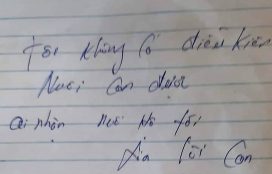 Tôi không có điều kiện
Nuôi con được
ai nhận nuôi hộ tôi
xin lỗi con